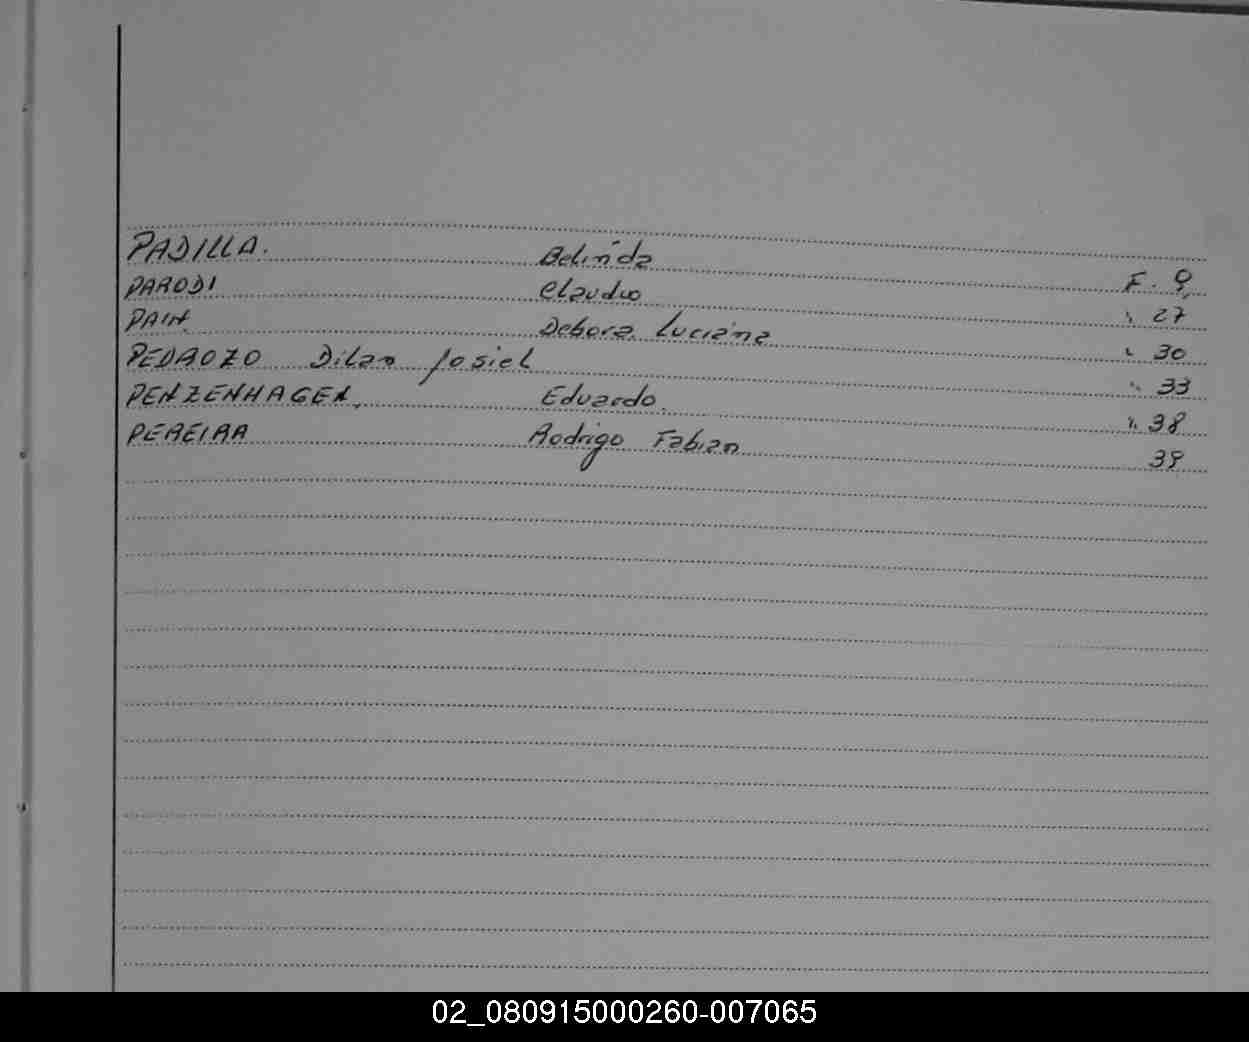 PADILLA. Belinda F. 9
PARODI Claudio " 27
PAIN Debora Luciana " 30
PEDROZO Dilan Josiel " 33
PENZENHAGEN. Eduardo. " 38
PEREIRA Rodrigo Fabian 39
02_080915000260-007065